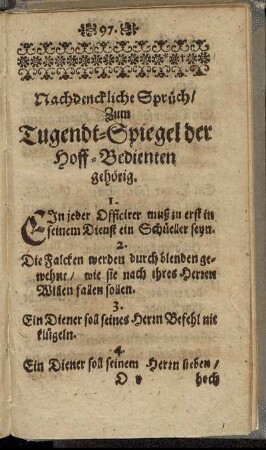 97.
Nachdenckliche Sprüch/
Zum
Tugendt-Spiegel der
Hoff-Bedienten
gehörig.
1.
EIn jeder Officirer muß zu erst in
seinem Dienst ein Schüeller seyn.
2.
Die Falcken werden durch blenden ge-
wehnt/ wie sie nach ihres Herren
Willen fallen sollen.
3.
Ein Diener soll seines Herrn Befehl nit
klügeln.
4.
Ein Diener soll seinem Herrn lieben/
hoch